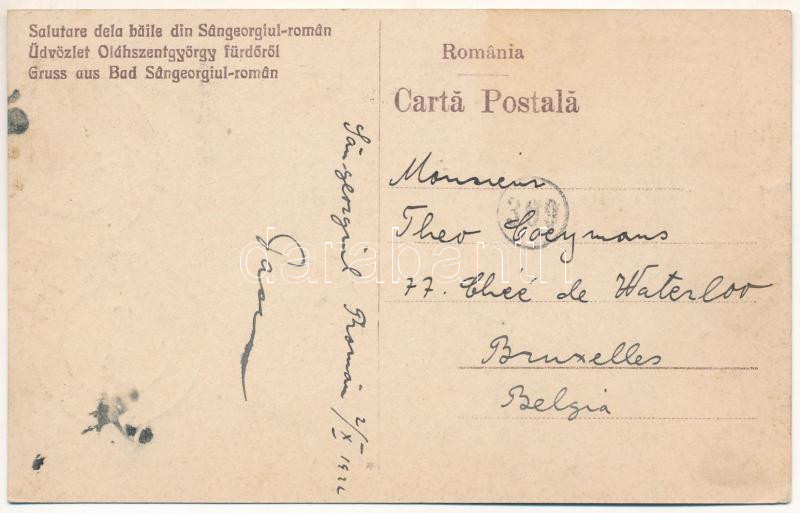 Salutare dela băile din Sângeorgiul-român
Üdvözlet Oláhszentgyörgy fürdőről
Gruss aus Bad Sângeorgiul-român
România
Cartă Postală
Sângeorgiul Român 2/X 1922
Monsieur
309
Theo Coeymans
77. Chée de Waterloo
Bruxelles
Belgia
darabanth